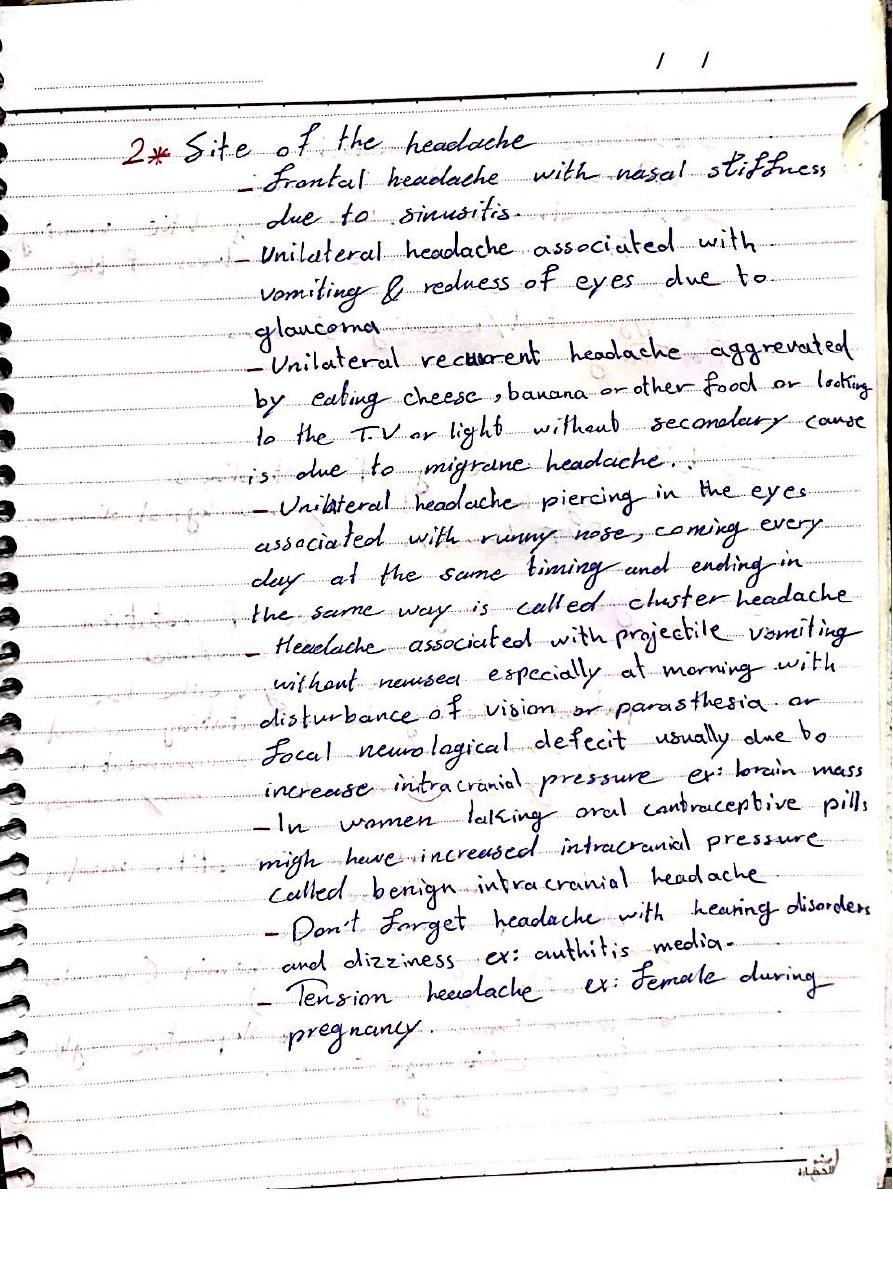 / /
2* Site of the headache
- frontal headache with nasal stiffness
due to sinusitis.
- Unilateral headache associated with
vomiting & redness of eyes due to
glaucoma
- Unilateral recurrent headache aggrevated
by eating cheese, banana or other food or looking
to the T.V or light without secondary cause
is due to migrane headache.
- Unilateral headache piercing in the eyes
associated with runny nose, coming every
day at the same timing and ending in
the same way is called cluster headache
- Headache associated with projectile vomiting
without neusea especially at morning with
disturbance of vision or parasthesia or
focal neurological defecit usually due to
increase intracranial pressure ex: brain mass
- In women taking oral contraceptive pills
migh have increased intracranial pressure
called benign intracranial headache
- Don't forget headache with hearing disorders
and dizziness ex: authitis media.
- Tension headache ex: female during
pregnancy.